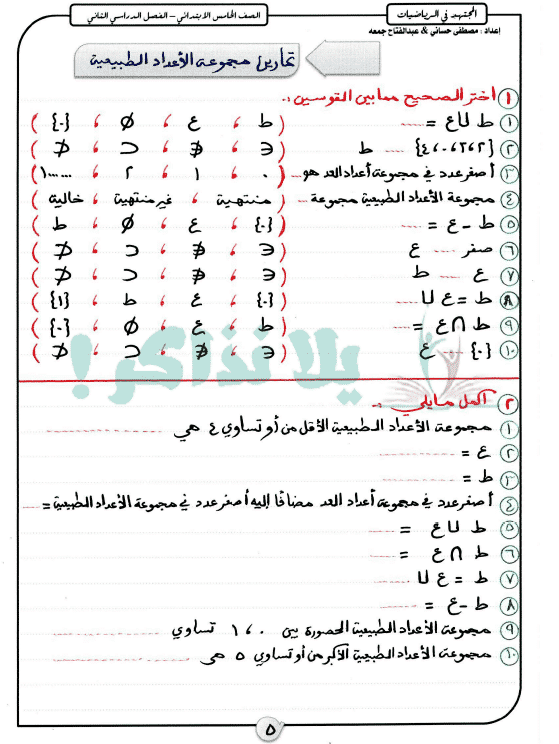 المجتهد في الرياضيات
الصف الخامس الابتدائي - الفصل الدراسي الثاني
إعداد : مصطفى حساني & عبدالفتاح جمعه
تمارين مجموعة الأعداد الطبيعية
١ اختر الصحيح مما بين القوسين :
١ ط ∪ ع = ...... ( ط ، ع ، ∅ ، {٠} )
٢ {٢،٦،٠،٤} ...... ط ( ∈ ، ∉ ، ⊂ ، ⊄ )
٣ أصغر عدد في مجموعة أعداد العد هو ...... ( ٠ ، ١ ، ٢ ، ١٠٠٠٠٠ )
٤ مجموعة الأعداد الطبيعية مجموعة ...... ( منتهية ، غير منتهية ، خالية )
٥ ط - ع = ...... ( {٠} ، ع ، ∅ ، ط )
٦ صفر ...... ع ( ∈ ، ∉ ، ⊂ ، ⊄ )
٧ ع ...... ط ( ∈ ، ∉ ، ⊂ ، ⊄ )
٨ ط = ع ∪ ...... ( {٠} ، ع ، ط ، {١} )
٩ ط ∩ ع = ...... ( ط ، ع ، ∅ ، {٠} )
١٠ {٠} ...... ع ( ∈ ، ∉ ، ⊂ ، ⊄ )
يلا نذاكر !
٢ أكمل ما يلي :
١ مجموعة الأعداد الطبيعية الأقل من أو تساوي ٤ هي ......
٢ ع = ......
٣ ط = ......
٤ أصغر عدد في مجموعة أعداد العد مضافًا إليه أصغر عدد في مجموعة الأعداد الطبيعية = ......
٥ ط ∪ ع = ......
٦ ط ∩ ع = ......
٧ ط = ع ∪ ......
٨ ط - ع = ......
٩ مجموعة الأعداد الطبيعية المحصورة بين ٠ ، ١ تساوي ......
١٠ مجموعة الأعداد الطبيعية الأكبر من أو تساوي ٥ هي ......
٥